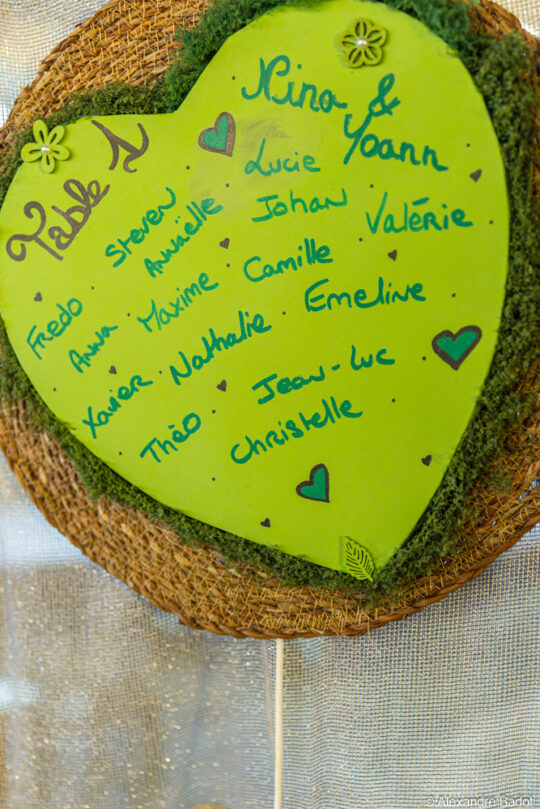 Table 1
Nina &
Yoann
Steven
Annaëlle
Lucie
Johan
Valérie
Fredo
Anna
Maxime
Camille
Xavier
Nathalie
Emeline
Théo
Jean-Luc
Christelle
Alexandre Badol